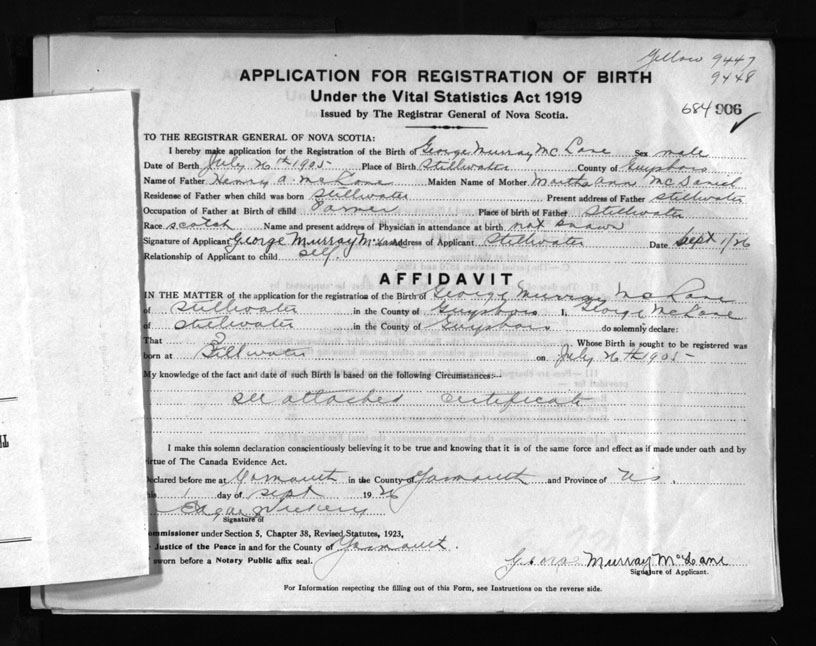 Yellow 9447
9448
APPLICATION FOR REGISTRATION OF BIRTH
Under the Vital Statistics Act 1919
684 906
Issued by The Registrar General of Nova Scotia.
TO THE REGISTRAR GENERAL OF NOVA SCOTIA:
I hereby make application for the Registration of the Birth of George Murray Mc Lane Sex male
Date of Birth July 26th 1905 Place of Birth Stillwater County of Guysboro
Name of Father Henry A. McLane Maiden Name of Mother Martha Ann
Residense of Father when child was born Stillwater Present address of Father Stillwater
Occupation of Father at Birth of child Farmer Place of birth of Father Stillwater
Race scotch Name and present address of Physician in attendance at birth not known
Signature of Applicant George Murray McLane Address of Applicant Stillwater Date Sept 1/26
Relationship of Applicant to child self.
AFFIDAVIT
IN THE MATTER of the application for the registration of the Birth of George Murray Mc Lane
of Stillwater in the County of Guysboro I, George McLane
of Stillwater in the County of Guysboro do solemnly declare:
That Whose Birth is sought to be registered was
born at Stillwater on July 26th 1905
My knowledge of the fact and date of such Birth is based on the following Circumstances:—
see attached certificate
I make this solemn declaration conscientiously believing it to be true and knowing that it is of the same force and effect as if made under oath and by
virtue of The Canada Evidence Act.
Declared before me at Yarmouth in the County of Yarmouth and Province of N.S.
this 1 day of Sept 1926
Signature of
Commissioner under Section 5, Chapter 38, Revised Statutes, 1923,
Justice of the Peace in and for the County of Yarmouth.
sworn before a Notary Public affix seal.
George Murray McLane
Signature of Applicant.
For Information respecting the filling out of this Form, see Instructions on the reverse side.